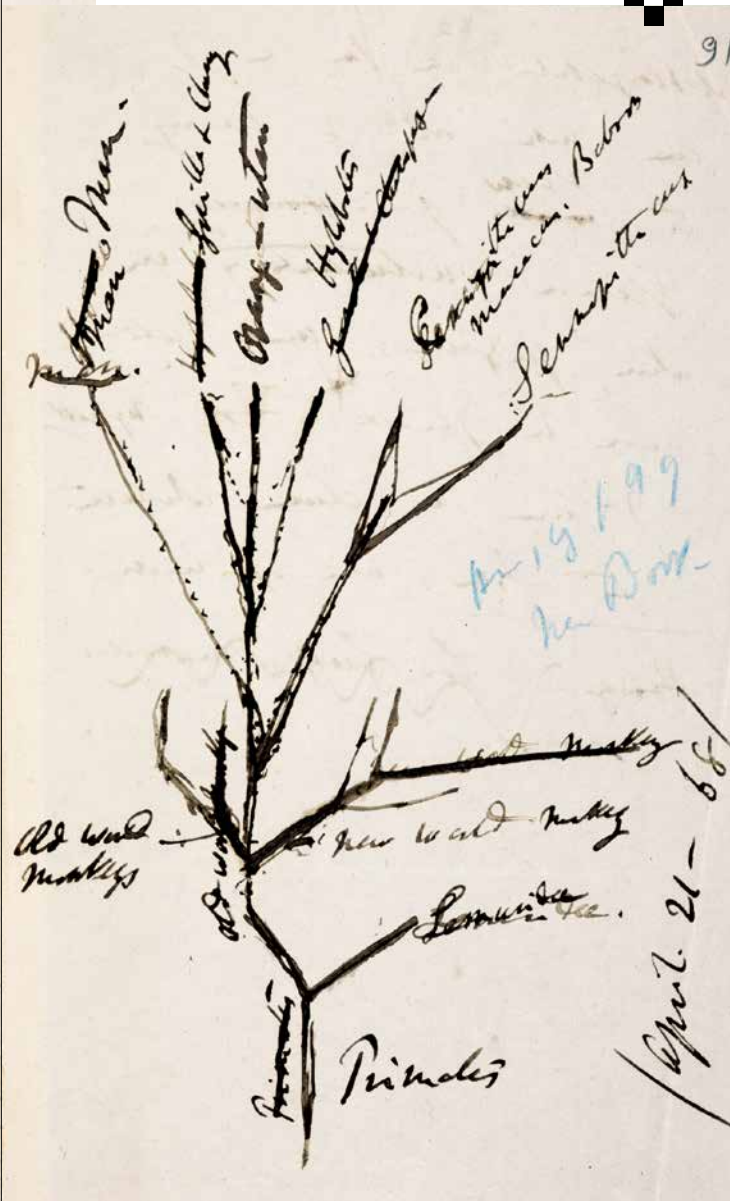 91
Man.
Man
Man.
Gorilla & Chimp
Orang-utan
Hylobates
Cercopithecus
Macacus. Baboon
Semnopithecus
new world monkey
Old world
monkeys
Old world monkey
new world monkey
Lemuridae.
Primates
Primates
April. 21 – 68